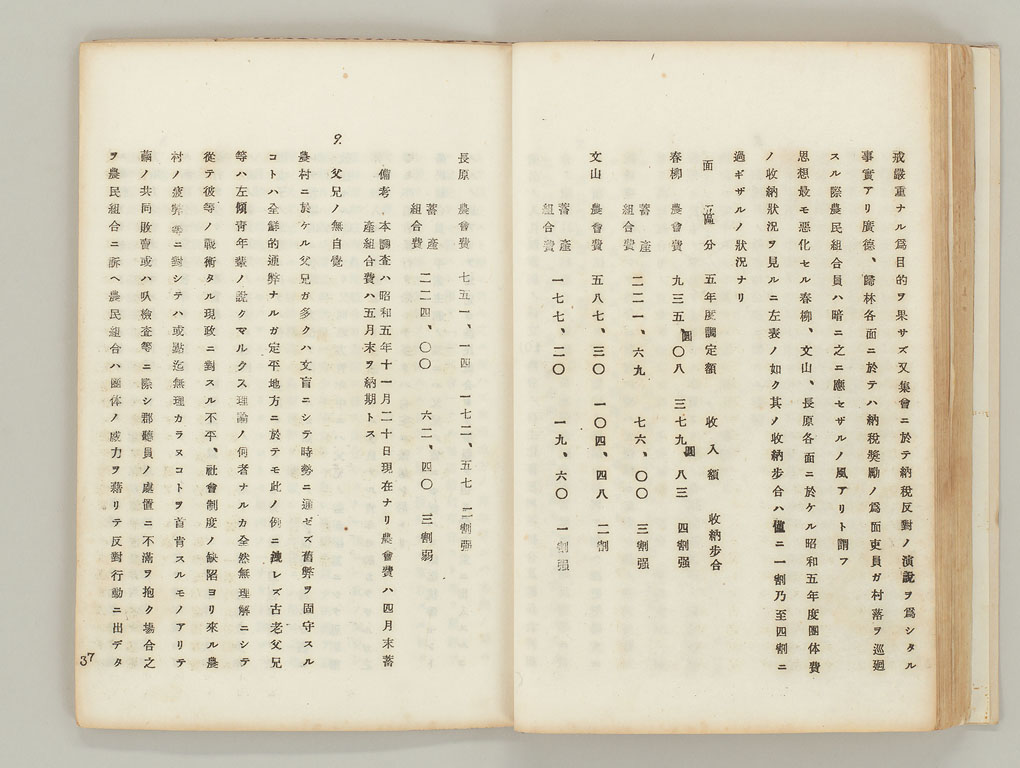 戒嚴重ナル爲目的ヲ果サズ又集會ニ於テ納稅反對ノ演說ヲ爲シタル
事實アリ廣德、歸林各面ニ於テハ納稅奬勵ノ爲面吏員ガ村落ヲ巡廻
スル際農民組合員ハ暗ニ之ニ應セザルノ風アリト謂フ
思想最モ惡化セル春柳、文山、長原各面ニ於ケル昭和五年度團体費
ノ收納狀況ヲ見ルニ左表ノ如ク其ノ收納步合ハ僅ニ一割乃至四割ニ
過ギザルノ狀況ナリ
面 區分 五年度調定額 收入額 收納步合
春柳 農會費 九三五圓〇八 三七九圓八三 四割强
畜産組合費 二二一、六九 七六、〇〇 三割强
文山 農會費 五八七、三〇 一〇四、四八 二割
畜産組合費 一七七、二〇 一九、六〇 一割强
長原 農會費 七五一、一四 一七二、五七 二割强
畜産組合費 二二四、〇〇 六二、四〇 三割弱
備考 本調査ハ昭和五年十一月二十日現在ナリ農會費ハ四月末畜
産組合費ハ五月末ヲ納期トス
9. 父兄ノ無自覺
農村ニ於ケル父兄ガ多クハ文盲ニシテ時勢ニ通ゼズ舊弊ヲ固守スル
コトハ全鮮的通弊ナルガ定平地方ニ於テモ此ノ例ニ洩レズ古老父兄
等ハ左傾靑年輩ノ說クマルクス理論ノ何者ナルカ全然無理解ニシテ
從テ彼等ノ戰術タル現政ニ對スル不平、社會制度ノ缺陷ヨリ來ル農
村ノ疲弊等ニ對シテハ或點迄無理カラヌコトヲ首肯スルモノアリテ
繭ノ共同販賣或ハ叺檢査等ニ際シ郡廳員ノ處置ニ不滿ヲ抱ク場合之
ヲ農民組合ニ訴ヘ農民組合ハ團体ノ威力ヲ藉リテ反對行動ニ出デタ
37